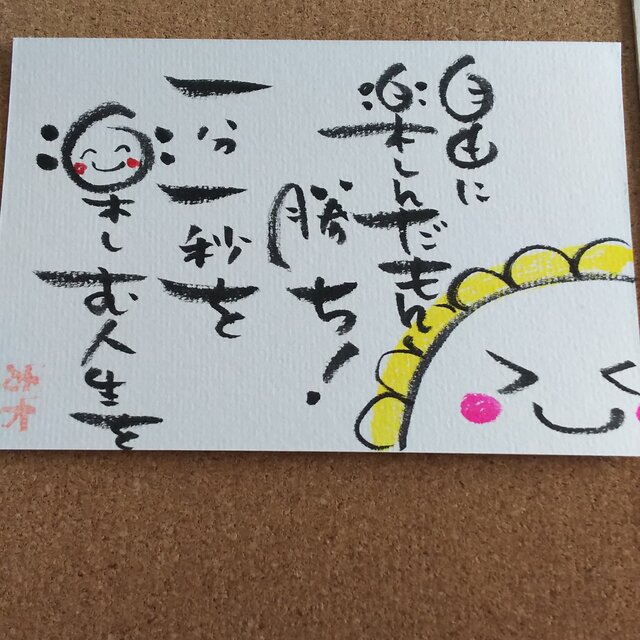 自由に
楽しんだもん
勝ち!
一分一秒を
楽しむ人生を